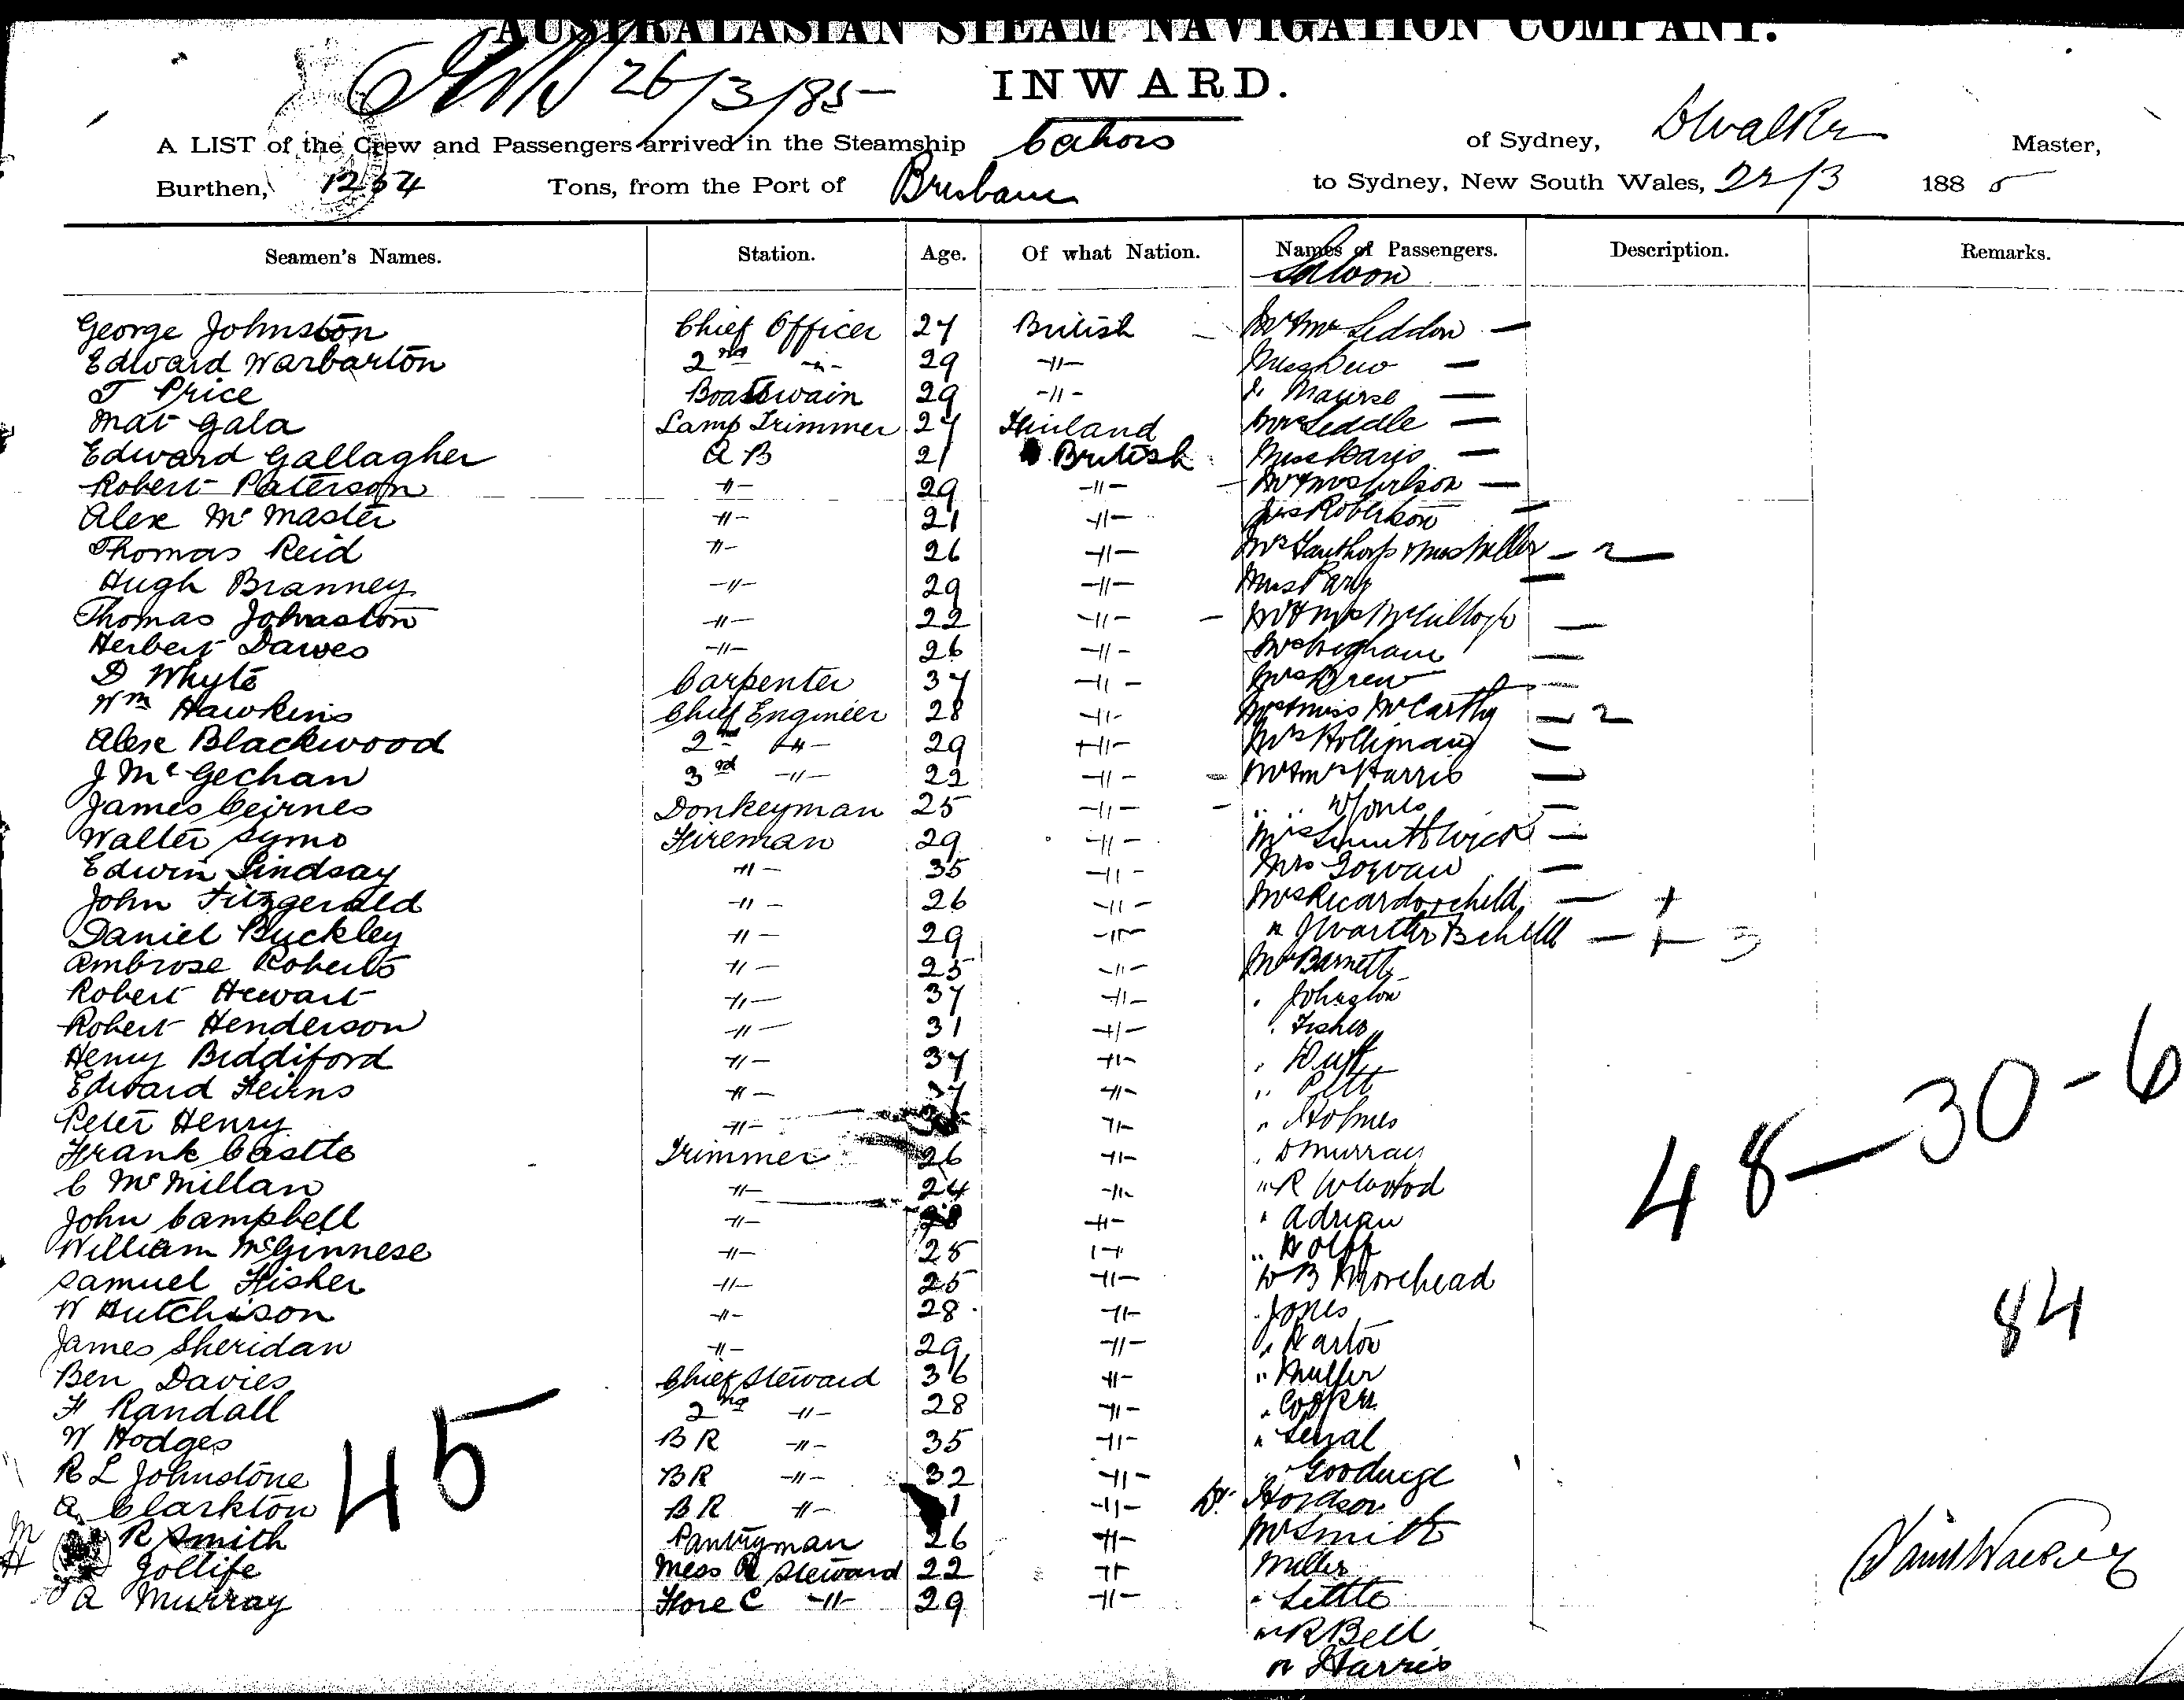 AUSTRALASIAN STEAM NAVIGATION COMPANY.
26/3/85
INWARD.
A LIST of the Crew and Passengers arrived in the Steamship Cahors of Sydney, D Walker Master,
Burthen, 1254 Tons, from the Port of Brisbane to Sydney, New South Wales, 22/3 1885
Seamen's Names. Station. Age. Of what Nation. Names of Passengers. Description. Remarks.
Saloon
George Johnston Chief Officer 27 British Mr & Mrs Seddon —
Edward Warbarton 2nd -"- 29 -"- Miss Dew —
T Price Boatswain 29 -"- —
Mat Gala Lamp Trimmer 27 Finland Mrs Leddle —
Edward Gallagher A B 21 British Miss Davis —
Robert Paterson -"- 29 -"- —
Alex Mc Master -"- 21 -"- Robertson —
Thomas Reid -"- 26 -"- — 2 —
Hugh Branney -"- 29 -"- —
Thomas Johnston -"- 22 -"- Mr & Mrs McCullogh —
Herbert Dawes -"- 26 -"- —
D Whyte Carpenter 37 -"- Mrs Drew —
Wm Hawkins Chief Engineer 28 -"- Mrs & Miss McCarthy — 2
Alex Blackwood 2nd -"- 29 -"- Mrs Hollimans —
J McGechan 3rd -"- 22 -"- Mr & Mrs Harris —
James Ceirnes Donkeyman 25 -"- " " W Jones —
Walter Symo Fireman 29 -"- Mrs —
Edwin Lindsay -"- 35 -"- Mrs Gowan —
John Fitzgerald -"- 26 -"- Mrs Ricardo & child — +
Daniel Buckley -"- 29 -"- — + 3
Ambrose Roberts -"- 25 -"- Mr Barnett
Robert Hewart -"- 37 -"- " Johnston
Robert Henderson -"- 31 -"- " Fisher
Henry Biddiford -"- 37 -"- "
Edward Heirns -"- 37 -"- " Pitt
Peter Henry -"- -"- " Holmes
Frank Castle Trimmer 26 -"- " D Murray
C McMillan -"- 24 -"- " R W Wood
John Campbell -"- 28 -"- " Adrian
William McGinnese -"- 25 -"- "
Samuel Fisher -"- 25 -"- W B Morehead
W Hutchison -"- 28 -"- Jones
James Sheridan -"- 29 -"- " Barton
Ben Davies Chief Steward 36 -"- " Muller
F Randall 2nd -"- 28 -"- " Cooper
W Hodges BR -"- 35 -"- "
R L Johnstone BR -"- 32 -"- "
A Clarkton BR -"- -"- Dr
R Smith Pantryman 26 -"- Mr Smith
Jollife Mess R Steward 22 -"- Miller
A Murray Fore C -"- 29 -"- " Little
" R Bell
" Harris
45
48—30-6
84